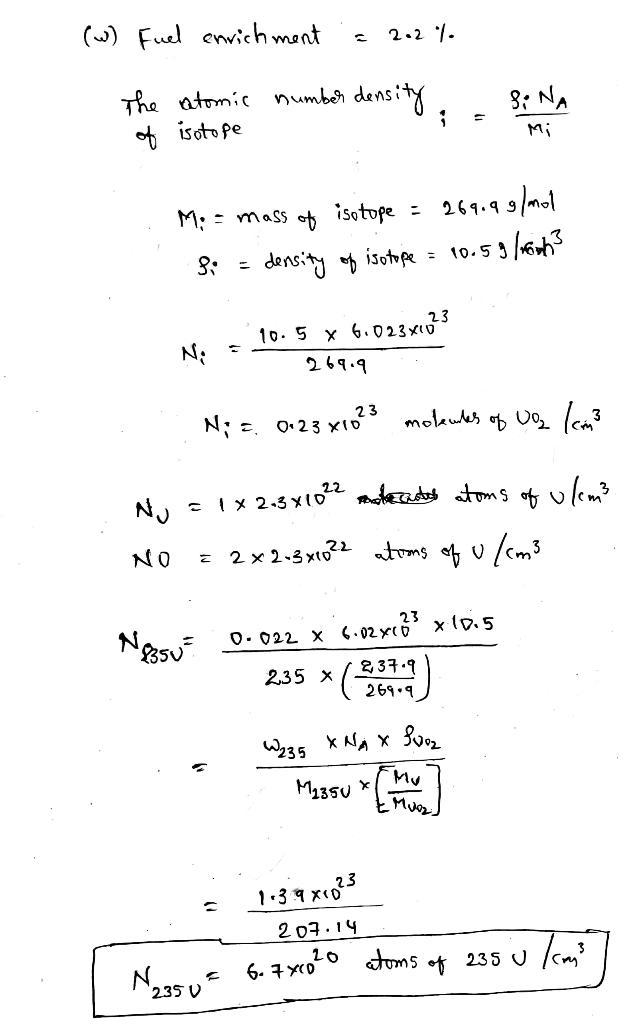 (w) Fuel enrichment = 2.2 %.
The atomic number density of isotope i = ρi NA / Mi
Mi = mass of isotope = 269.9 g/mol
ρi = density of isotope = 10.5 g/cm³
Ni = 10.5 x 6.023x10²³ / 269.9
Ni = 0.23 x10²³ molecules of UO₂ /cm³
NU = 1 x 2.3x10²² atoms of U/cm³
NO = 2 x 2.3x10²² atoms of U/cm³
N235U = 0.022 x 6.02x10²³ x 10.5 / 235 x (237.9 / 269.9)
= W235 x NA x ρUO2 / M235U x [MU / MUO2]
= 1.39 x10²³ / 207.14
N235U = 6.7x10²⁰ atoms of 235 U /cm³